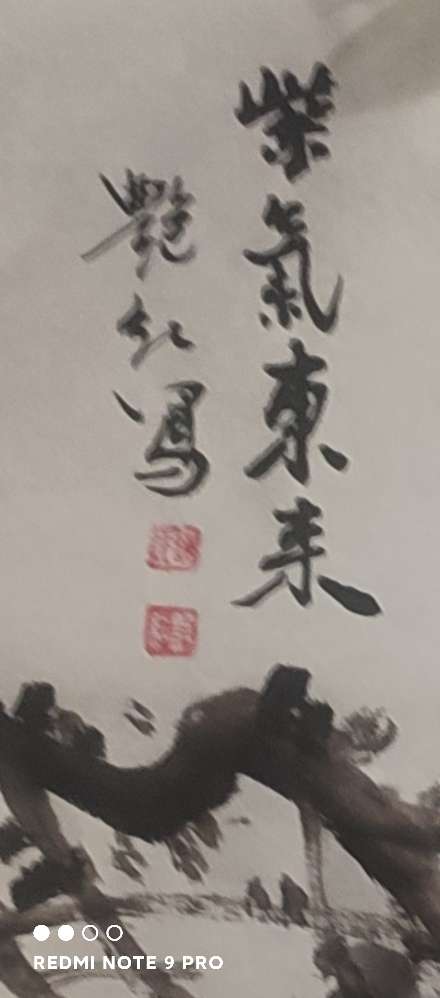 紫氣東来
艷紅寫
REDMI NOTE 9 PRO